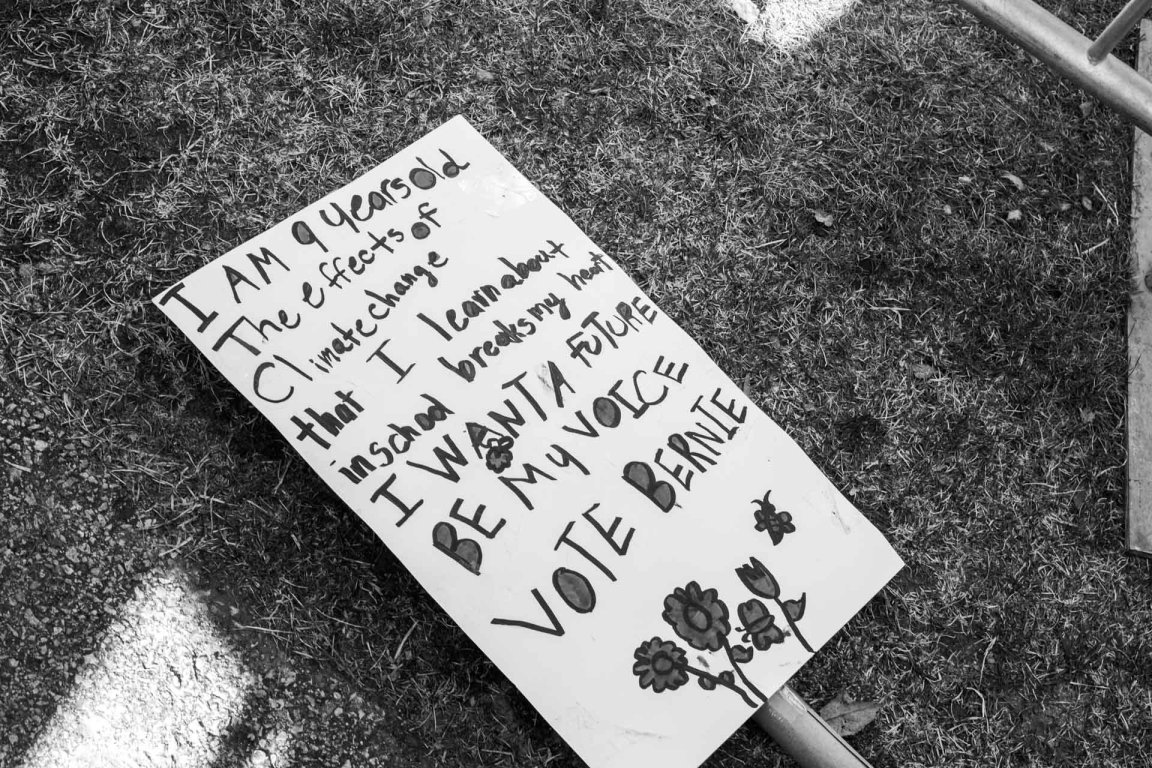 I AM 9 years old
The effects of
Climate change
that I learn about
in school breaks my heart
I WANT A FUTURE
BE My VOICE
VOTE BERNIE